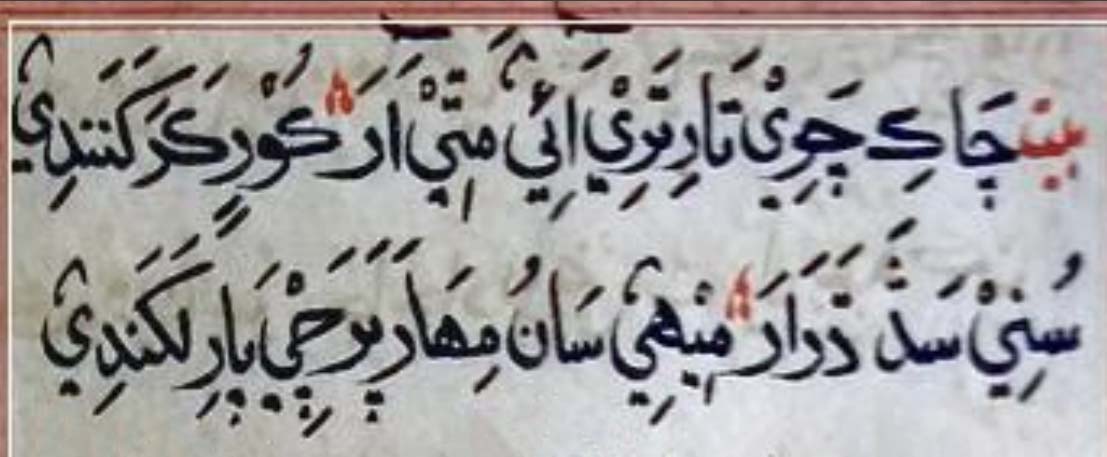 بيت چَاکِ چَوِيْ تَارِ تَرِيْ اَئِيْ مَتِيْ اَرَ کُوْرٍ کَرَ کَنَندِيْ
سُنِيْ سَڎَ ڌَرَارَ مِيْهِيْ سَانُ مِهَارَ پَرَچِيْ پَارِ لَکَندِيْ